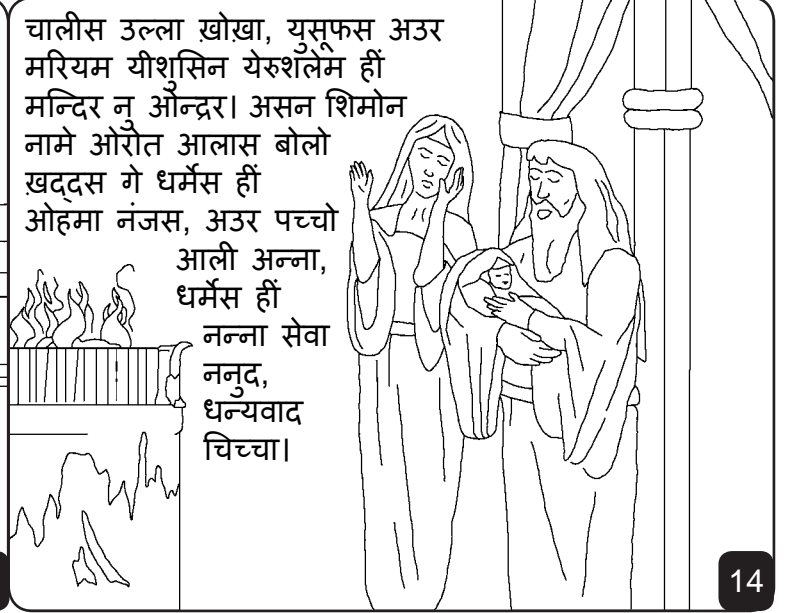 चालीस उल्ला ख़ोख़ा, युसूफस अउर
मरियम यीशुसिन येरुशलेम हीं
मन्दिर नु ओन्द्रर। असन शिमोन
नामे ओरोत आलास बोलो
ख़द्दस गे धर्मेस हीं
ओहमा नंजस, अउर पच्चो
आली अन्ना,
धर्मेस हीं
नन्ना सेवा
ननुद,
धन्यवाद
चिच्चा।
14